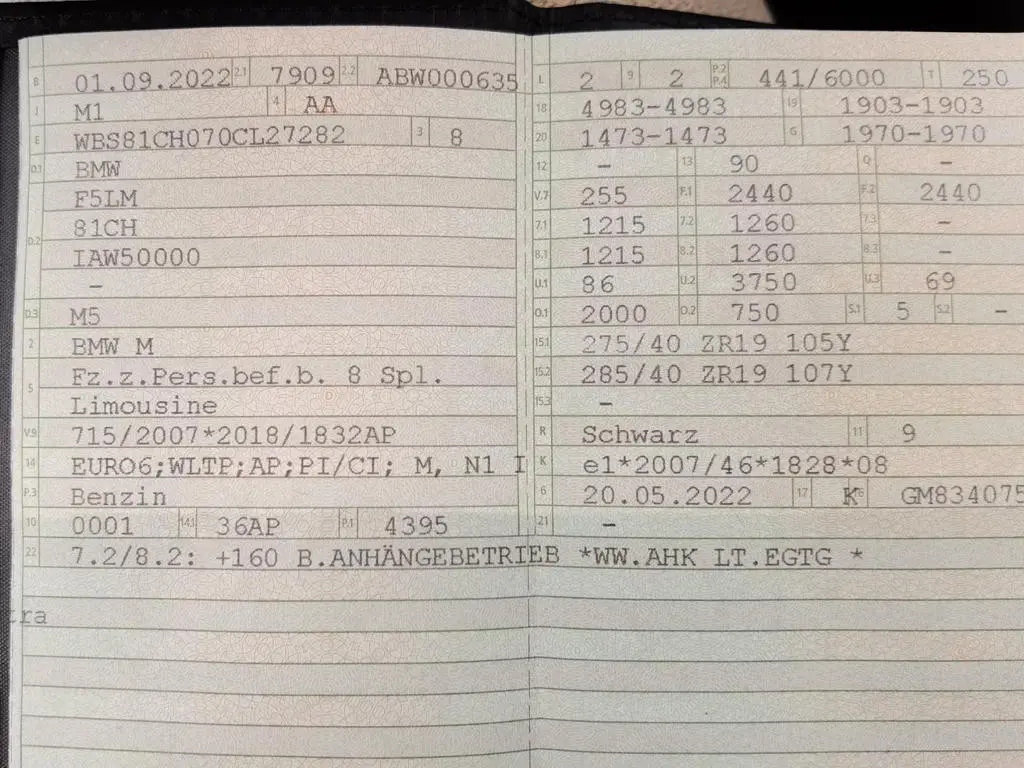 B 01.09.2022 2.1 7909 2.2 ABW000635
J M1 4 AA
E WBS81CH070CL27282 3 8
D.1 BMW
F5LM
81CH
D.2 IAW50000
–
D.3 M5
2 BMW M
5 Fz.z.Pers.bef.b. 8 Spl.
Limousine
V.9 715/2007*2018/1832AP
14 EURO6;WLTP;AP;PI/CI; M, N1 I
P.3 Benzin
10 0001 14.1 36AP P.1 4395
L 2 9 2 P.2 P.4 441/6000 T 250
18 4983-4983 19 1903-1903
20 1473-1473 G 1970-1970
12 – 13 90 Q –
V.7 255 F.1 2440 F.2 2440
7.1 1215 7.2 1260 7.3 –
8.1 1215 8.2 1260 8.3 –
U.1 86 U.2 3750 U.3 69
O.1 2000 O.2 750 S.1 5 S.2 –
15.1 275/40 ZR19 105Y
15.2 285/40 ZR19 107Y
15.3 –
R Schwarz 11 9
K e1*2007/46*1828*08
6 20.05.2022 17 K 16 GM834075
21 –
22 7.2/8.2: +160 B.ANHÄNGEBETRIEB *WW.AHK LT.EGTG *
tra